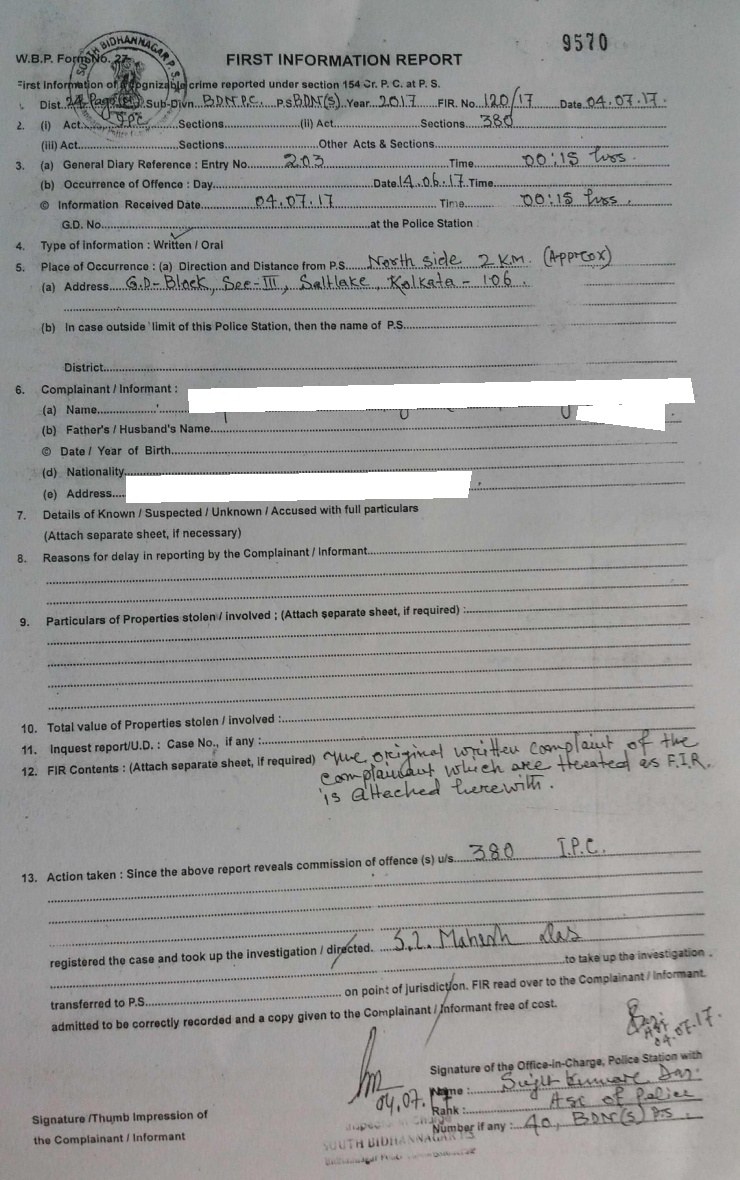 9570
SOUTH BIDHANNAGAR P.S.
W.B.P. Form No. 27
FIRST INFORMATION REPORT
First Information of Cognizable crime reported under section 154 Cr. P. C. at P. S.
1. Dist. 24 Pgs(N) Sub-Divn. BDN P.C. P.S BDN(S) Year 2017 FIR. No 120/17 Date 04.07.17.
2. (i) Act IPC Sections (ii) Act Sections 380
(iii) Act Sections Other Acts & Sections
3. (a) General Diary Reference : Entry No. 203 Time 00:15 hrs.
(b) Occurrence of Offence : Day Date 14.06.17 Time
© Information Received Date 04.07.17 Time 00:15 hrs.
G.D. No. at the Police Station
4. Type of information : Written / Oral
5. Place of Occurrence : (a) Direction and Distance from P.S. North side 2 K.M. (Approx)
(a) Address G.D-Block, Sec-III, Saltlake, Kolkata - 106.
(b) In case outside limit of this Police Station, then the name of P.S.
District
6. Complainant / Informant :
(a) Name
(b) Father's / Husband's Name
© Date / Year of Birth
(d) Nationality
(e) Address
7. Details of Known / Suspected / Unknown / Accused with full particulars
(Attach separate sheet, if necessary)
8. Reasons for delay in reporting by the Complainant / Informant
9. Particulars of Properties stolen / involved ; (Attach separate sheet, if required) :
10. Total value of Properties stolen / involved :
11. Inquest report/U.D. : Case No., if any :
12. FIR Contents : (Attach separate sheet, if required) The original written complaint of the
complainant which are treated as F.I.R.
is attached herewith.
13. Action taken : Since the above report reveals commission of offence (s) u/s 380 I.P.C.
registered the case and took up the investigation / directed. S.I. Mahesh Das
to take up the investigation
transferred to P.S. on point of jurisdiction. FIR read over to the Complainant / Informant.
admitted to be correctly recorded and a copy given to the Complainant / Informant free of cost.
ASI
04.07.17.
Signature of the Office-in-Charge, Police Station with
04.07.17
Name : Sujit Kumar Das.
Rank : ASI of Police
Number if any : 40, BDN(S) P.S.
Signature /Thumb Impression of
the Complainant / Informant
Inspector in Charge
SOUTH BIDHANNAGAR P.S.